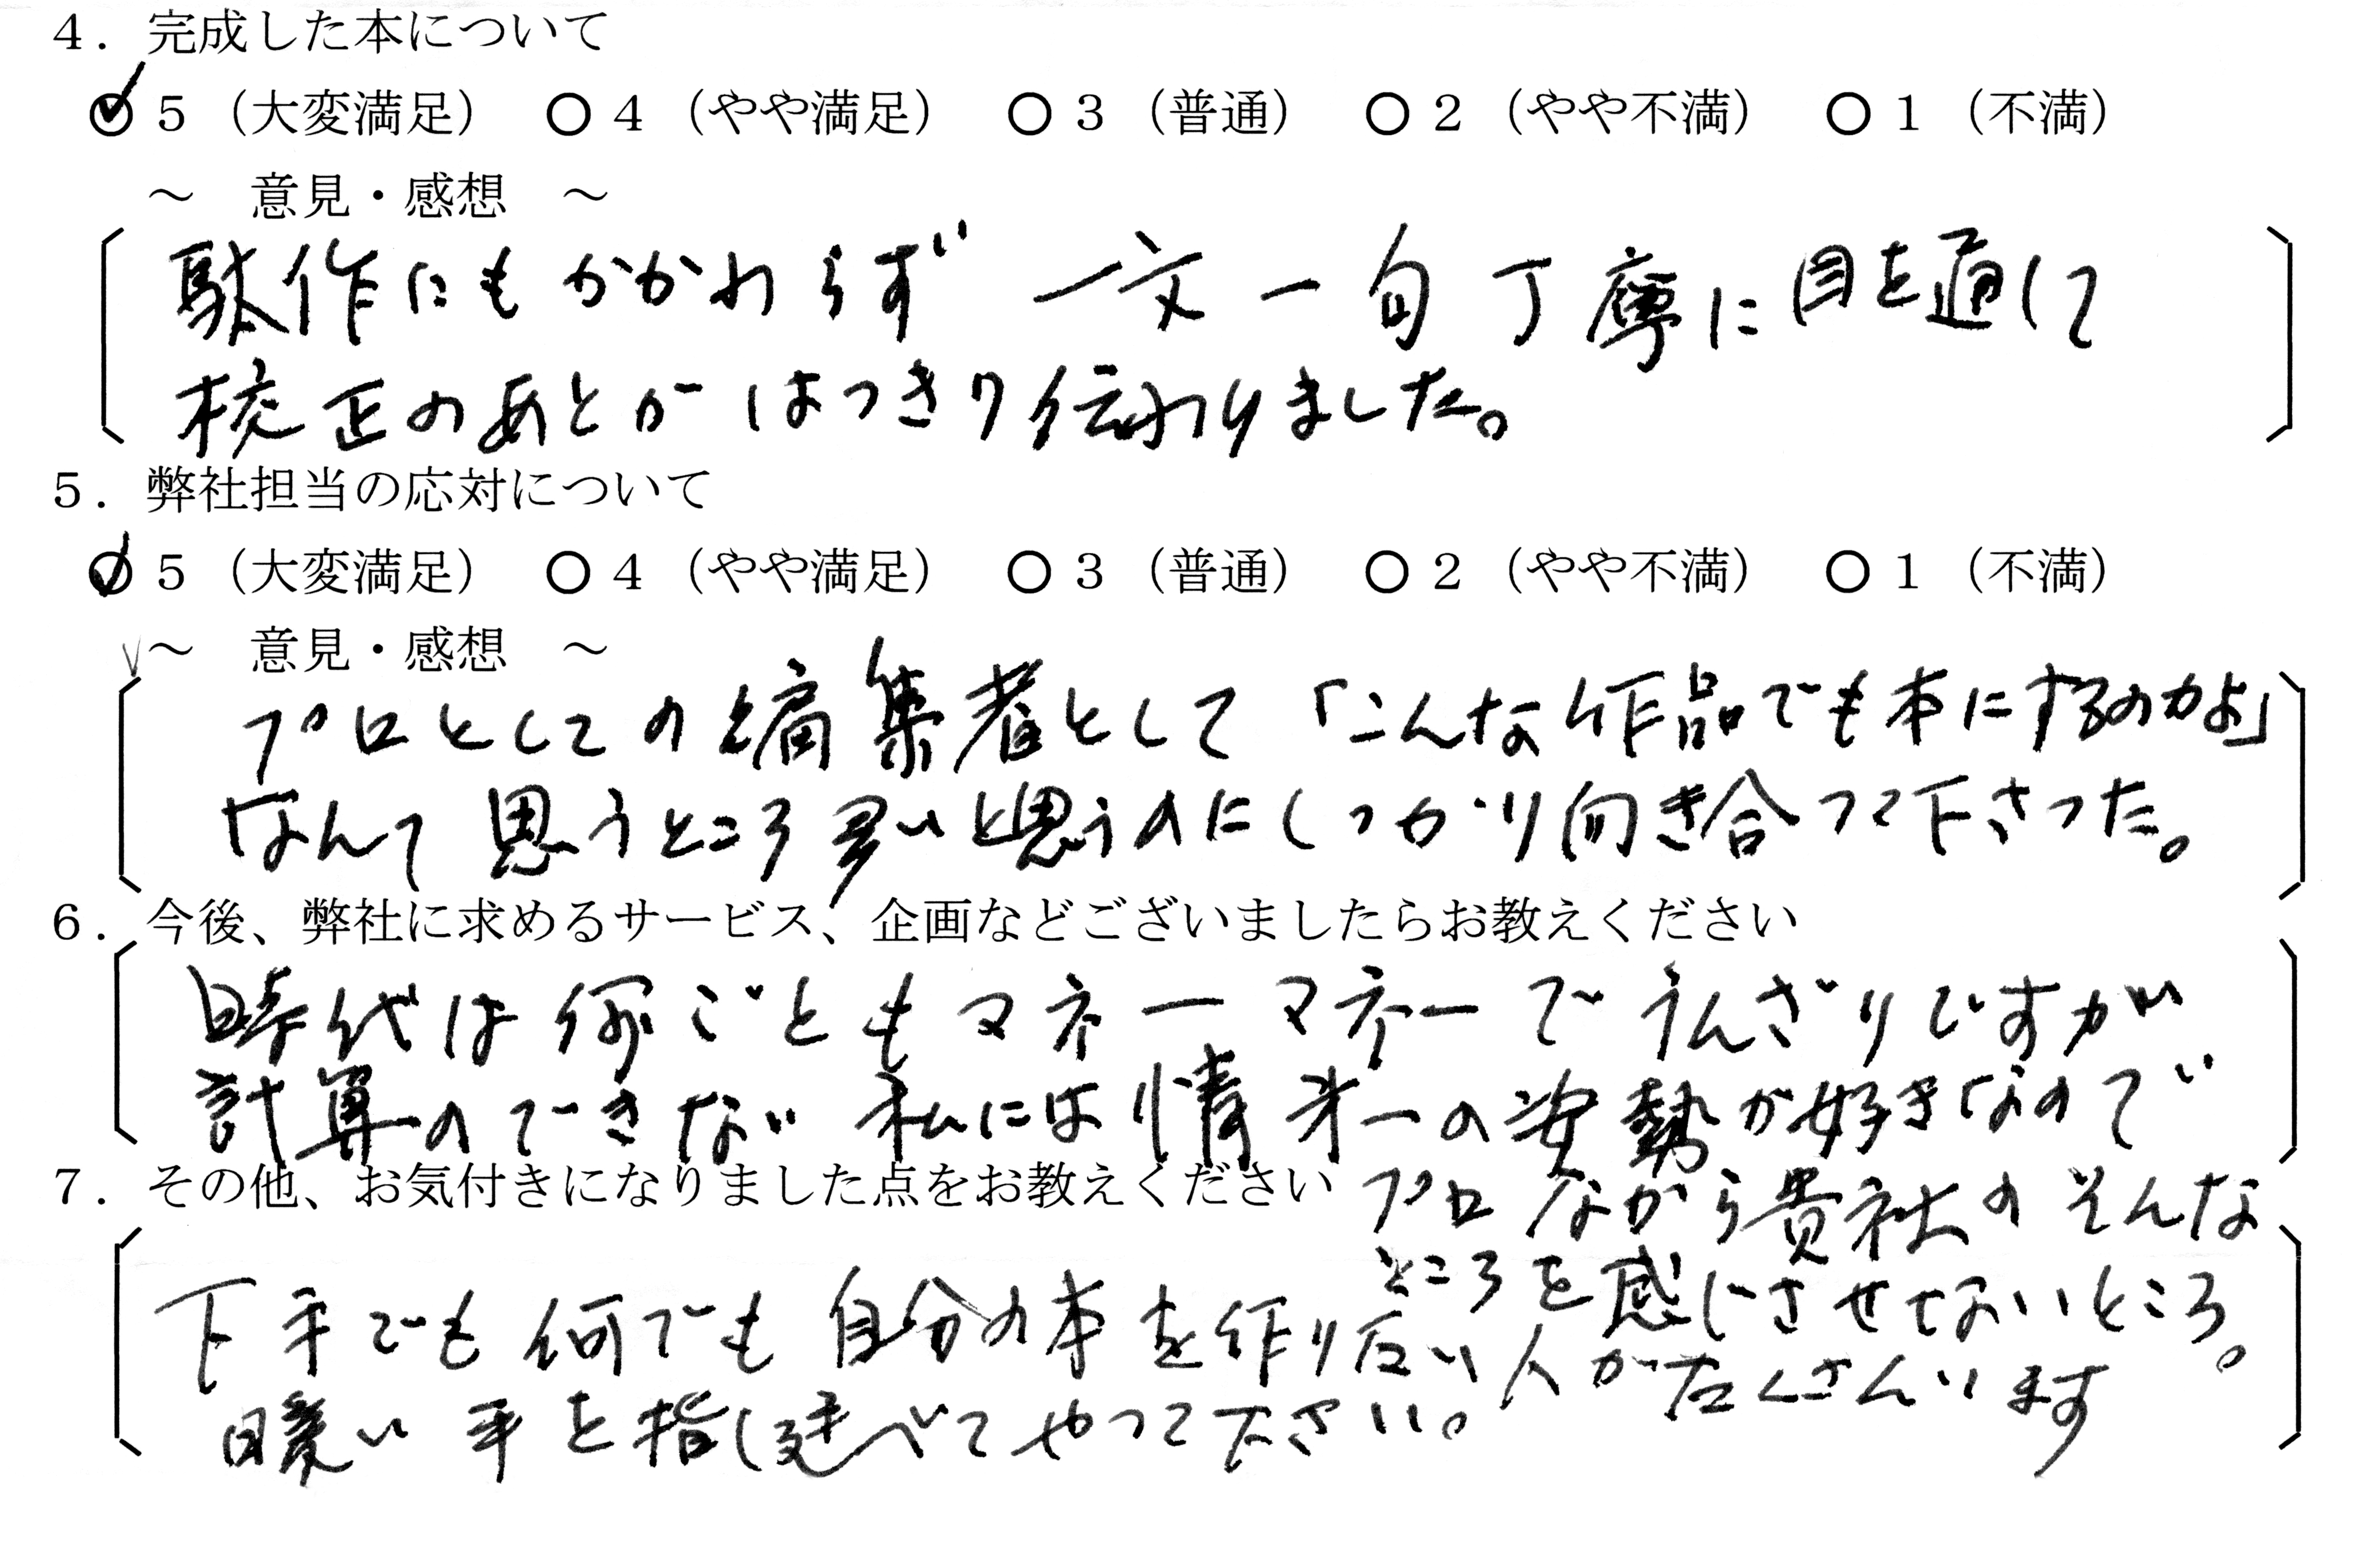 4．完成した本について
○5（大変満足） ○4（やや満足） ○3（普通） ○2（やや不満） ○1（不満）
～ 意見・感想 ～
駄作にもかかわらず 一文一句丁寧に目を通して
校正のあとがはっきり伝わりました。
5．弊社担当の応対について
○5（大変満足） ○4（やや満足） ○3（普通） ○2（やや不満） ○1（不満）
～ 意見・感想 ～
プロとしての編集者として「こんな作品でも本にするのかよ」
なんて思うところ多いと思うのにしっかり向き合って下さった。
6．今後、弊社に求めるサービス、企画などございましたらお教えください
時代は何ごともマネーマネーでうんざりですが
計算のできない私には情才一の姿勢が好きなので
プロながら貴社のそんな
ところを感じさせないところ。
7．その他、お気付きになりました点をお教えください
下手でも何でも自分の本を作りたい人がたくさんいます
暖い手を指し延べてやって下さい。